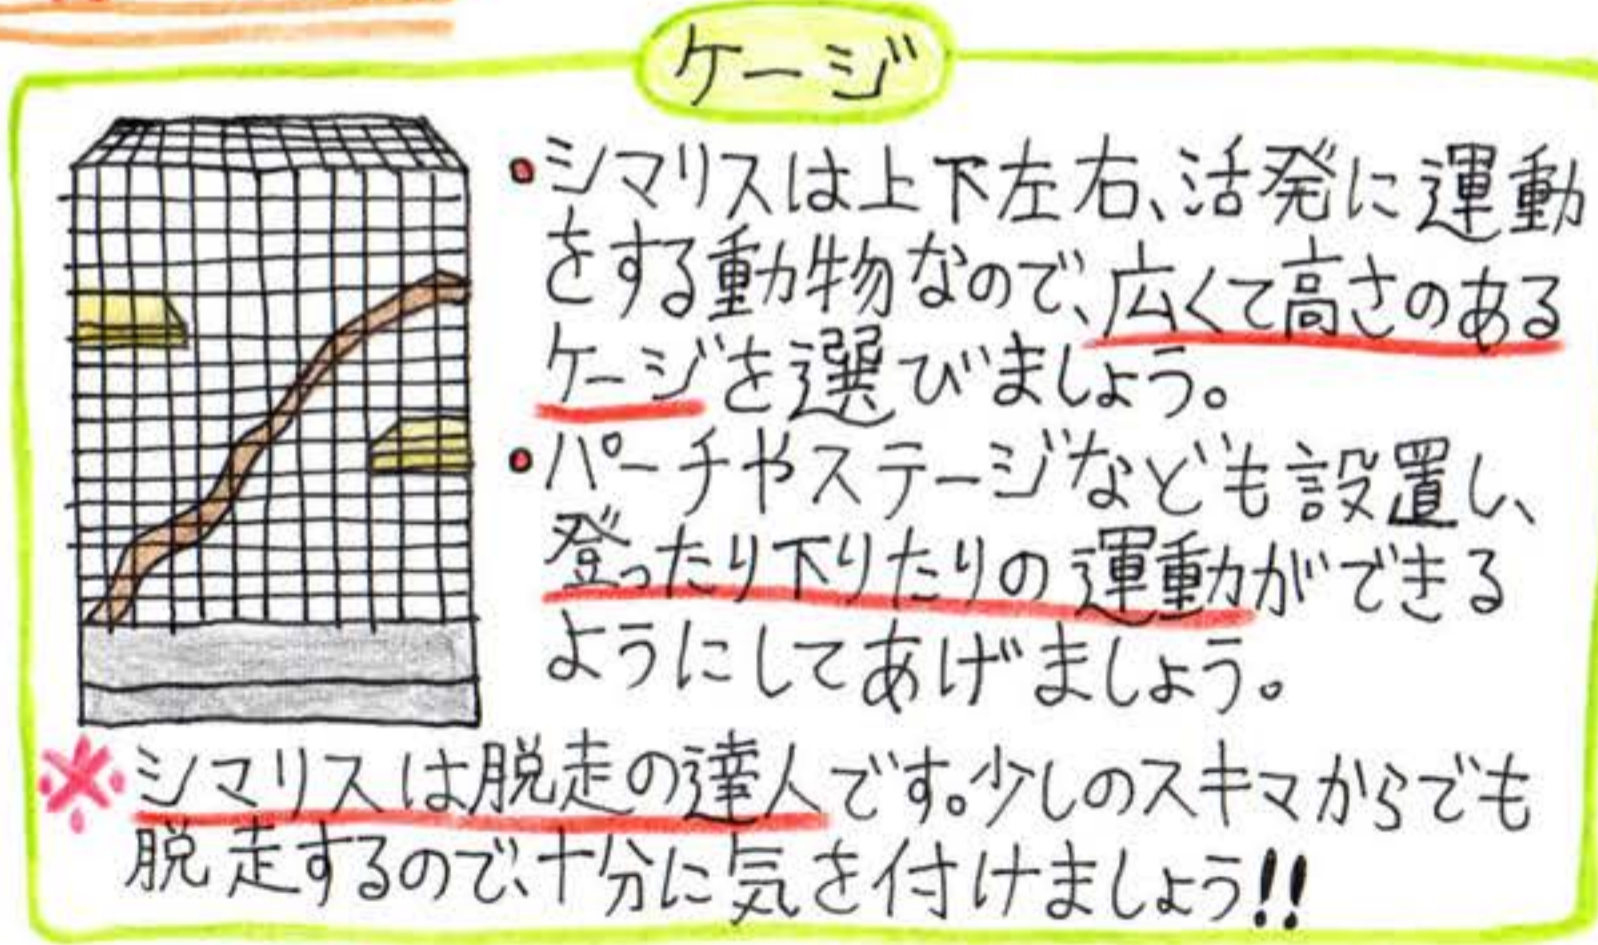 ケージ
•シマリスは上下左右、活発に運動
をする動物なので、広くて高さのある
ケージを選びましょう。
•パーチやステージなども設置し、
登ったり下りたりの運動ができる
ようにしてあげましょう。
※シマリスは脱走の達人です。少しのスキマからでも
脱走するので、十分に気を付けましょう!!